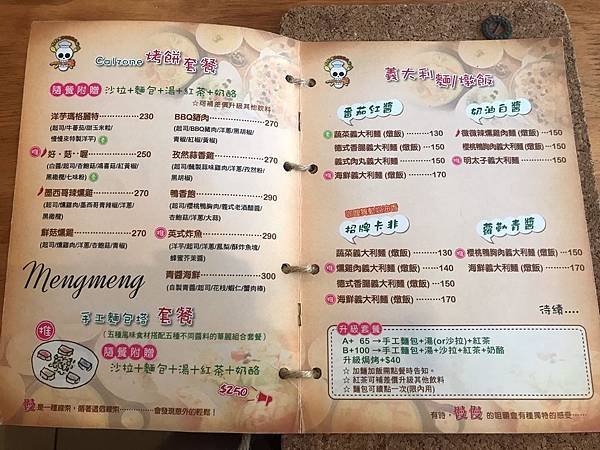 Calzone 烤餅套餐
隨餐附贈 沙拉+麵包+湯+紅茶+奶酪
☆可補差價升級其他飲料
洋芋瑪格麗特 230
(起司/牛番茄/甜玉米粒/
慢慢來特製洋芋)
推 好・菇・喔 250
(白醬/起司/杏鮑菇/鴻喜菇/紅黃椒/
黑橄欖/七味粉)
墨西哥辣燻雞 270
(起司/燻雞肉/墨西哥青辣椒/洋蔥/
黑橄欖)
鮮菇燻雞 270
(起司/燻雞肉/洋蔥/杏鮑菇/青椒)
BBQ豬肉 270
(起司/BBQ豬肉/洋蔥/黑胡椒/
青椒/紅椒/黃椒)
孜然蒜香雞 270
(起司/醃製蒜味雞肉/洋蔥/孜然粉/
黑胡椒)
鴨香飽 290
(起司/櫻桃鴨胸肉/義式老酒醋醬/
杏鮑菇/洋蔥/大蒜)
推 英式炸魚 290
(洋芋/起司/洋蔥/鳳梨/酥炸魚塊/
蜂蜜芥茉醬)
青醬海鮮 300
(自製青醬/起司/花枝/蝦仁/蟹肉棒)
Mengmeng
手工麵包塔 套餐
(五種風味食材搭配五種不同醬料的華麗組合套餐)
推
隨餐附贈
沙拉+麵包+湯+紅茶+奶酪
$250
慢是一種線索，循著這個線索⋯⋯會發現意外的輕鬆！
義大利麵/燉飯
番茄紅醬
蔬菜義大利麵 (燉飯) 130
德式香腸義大利麵 (燉飯) 150
義式肉丸義大利麵 150
推 海鮮義大利麵 (燉飯) 170
奶油白醬
微微辣燻雞肉麵 (燉飯) 150
櫻桃鴨胸肉義大利麵 (燉飯) 150
推 明太子義大利麵 (燉飯) 170
招牌卡非
蔬菜義大利麵 (燉飯) 130
推 燻雞肉義大利麵 (燉飯) 140
德式香腸義大利麵 (燉飯) 150
推 海鮮義大利麵 (燉飯) 170
青醬
推 櫻桃鴨胸肉義大利麵 (燉飯) 150
海鮮義大利麵 (燉飯) 170
待續....
升級套餐
A+ 65 →手工麵包+湯(or沙拉)+紅茶
B+100 →手工麵包+湯+沙拉+紅茶+奶酪
升級焗烤+$40
☆ 加麵加飯需點餐時告知。
☆ 紅茶可補差價升級其他飲料
☆ 麵包可續點一次(限內用)
有時，慢慢的咀嚼會有種獨特的感受⋯⋯